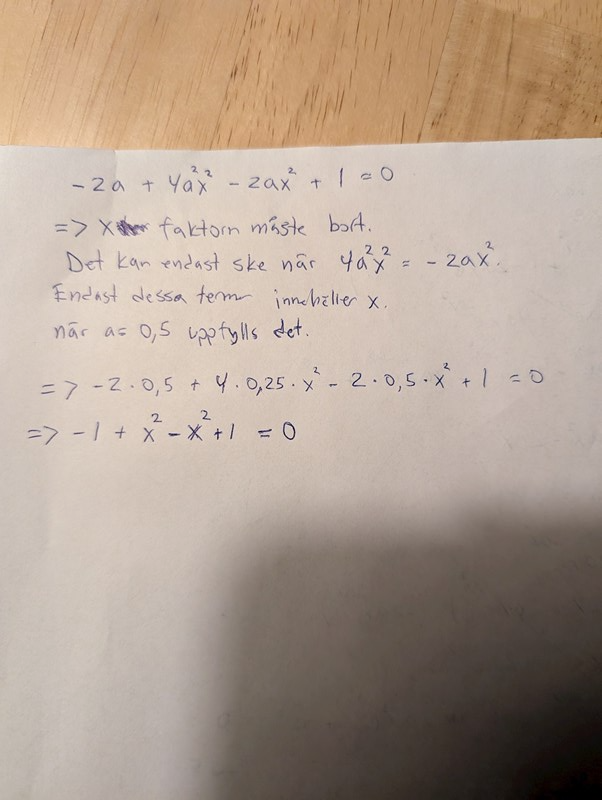 -2a + 4a²x² - 2ax² + 1 = 0
=> x faktorn måste bort.
Det kan endast ske när 4a²x² = -2ax².
Endast dessa term innehåller x.
när a = 0,5 uppfylls det.
=> -2 · 0,5 + 4 · 0,25 · x² - 2 · 0,5 · x² + 1 = 0
=> -1 + x² - x² + 1 = 0